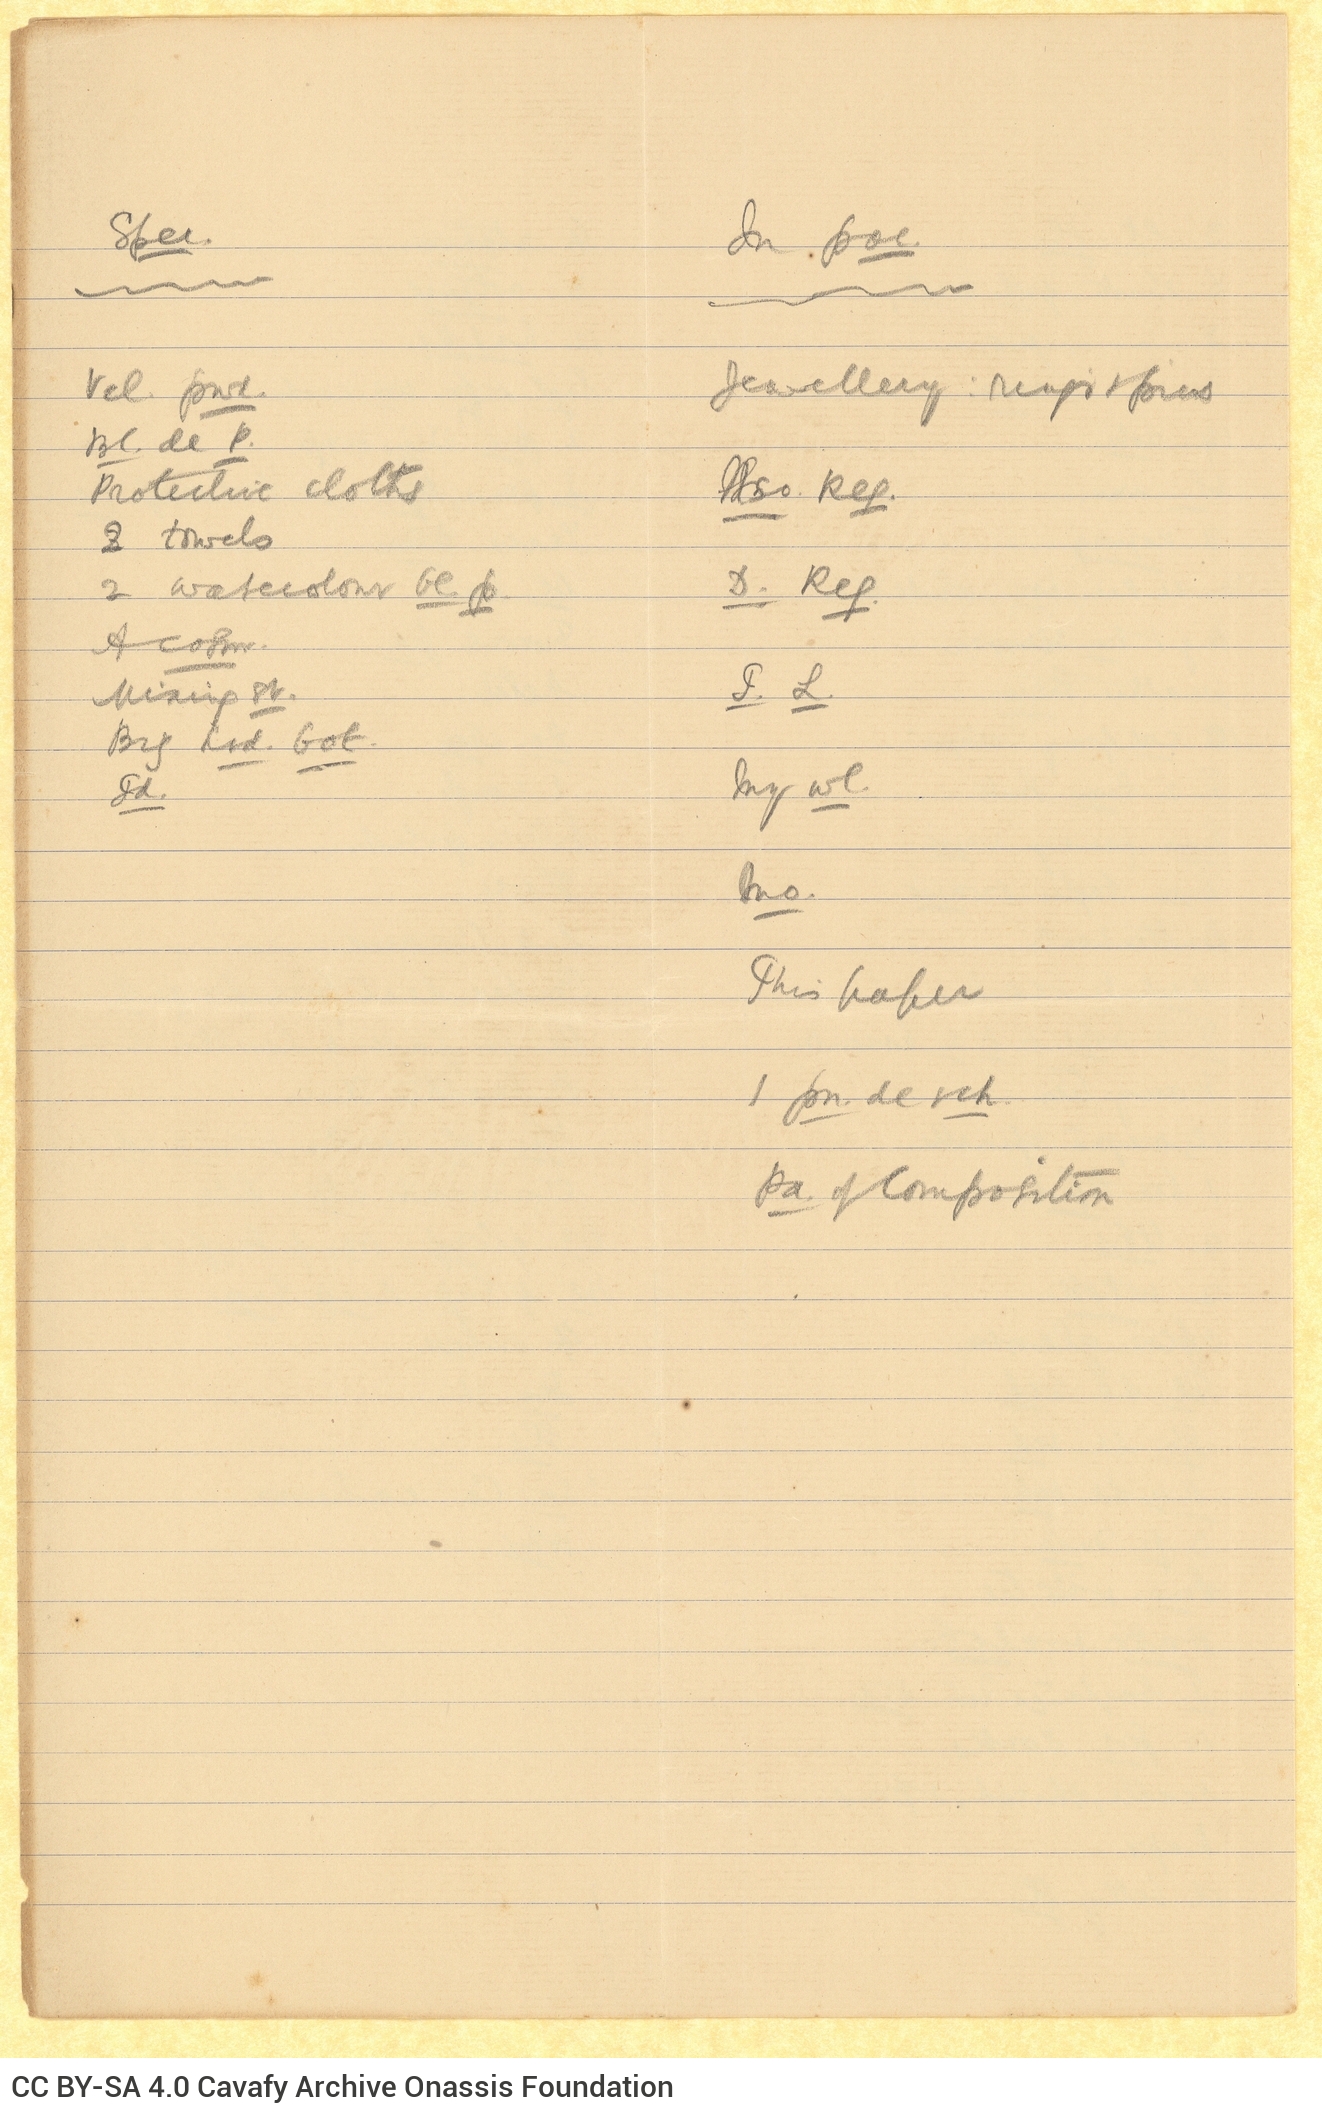 Spec.
Vel. pwd.
Bl. de P.
Protective cloths
2 towels
2 watercolour bl. p.
A
Mixing st.
Big bot.
Td.
In poc.
Jewellery: rings & pins
Reg.
D. Reg.
T. L.
My wl.
This paper
1 pn. de rch.
Pa. of Composition
CC BY-SA 4.0 Cavafy Archive Onassis Foundation